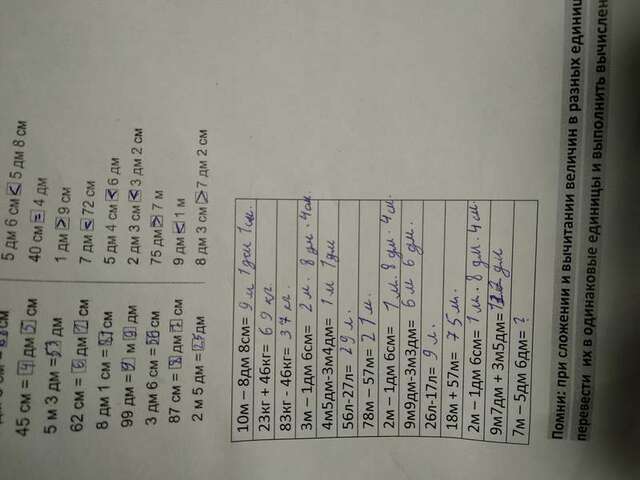 5 дм 6 см < 5 дм 8 см
45 см = 4 дм 5 см
40 см = 4 дм
5 м 3 дм = 53 дм
1 дм > 9 см
62 см = 6 дм 2 см
7 дм < 72 см
8 дм 1 см = 81 см
5 дм 4 см < 6 дм
99 дм = 9 м 9 дм
2 дм 3 см < 3 дм 2 см
3 дм 6 см = 36 см
75 дм > 7 м
87 см = 8 дм 7 см
9 дм < 1 м
2 м 5 дм = 25 дм
8 дм 3 см > 7 дм 2 см
10м – 8дм 8см= 9 м 1 дм 1 см.
23кг + 46кг= 69 кг.
83кг - 46кг= 37 кг.
3м – 1дм 6см= 2 м. 8 дм. 4 см.
4м5дм-3м4дм= 1 м 1 дм
56л-27л= 29 л.
78м – 57м= 21 м.
2м – 1дм 6см= 1 м. 8 дм. 4 см.
9м9дм-3м3дм= 6 м 6 дм.
26л-17л= 9 л.
18м + 57м= 75 м.
2м – 1дм 6см= 1 м. 8 дм. 4 см.
9м7дм + 3м5дм= дм
7м – 5дм 6дм= ?
Помни: при сложении и вычитании величин в разных
перевести их в одинаковые единицы и выполнить